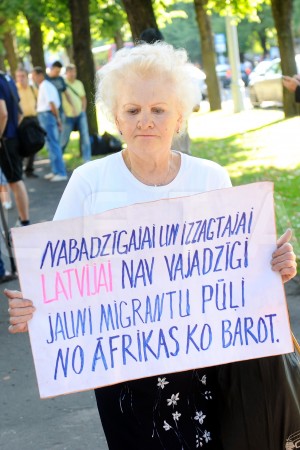 NABADZĪGAJAI UN IZZAGTAJAI
LATVIJAI NAV VAJADZĪGI
JAUNI MIGRANTU PŪĻI
NO ĀFRIKAS KO BAROT.